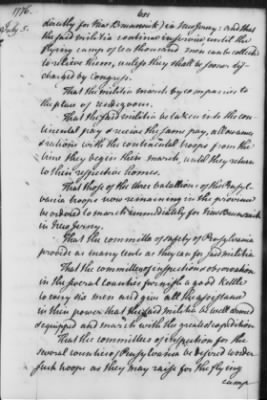 1776.
July 5.
directly for New Brunswick) in New Jersey: and that
the said militia continue in service, until the
flying camp of ten thousand men can be collected
to relieve them, unless they shall be sooner dis-
charged by Congress.
That the militia march by companies to
the place of rendezvous.
That the said militia be taken into the con-
tinental pay & receive the same pay, allowance
& rations with the continental troops from the
time they begin their march, until they return
to their respective homes.
That those of the three batallions of the Pensyl-
vania troops now remaining in the province
be ordered to march immediately for New Brunswick
in New Jersey.
That the committee of safety of Pensylvania
provide as many tents as they can for said militia
That the committees of inspection & observation
in the several counties furnish a good kettle
to every six men and give all the assistance
in their power that the said militia be well armed
& equipped and march with the greatest expedition
That the committees of inspection for the
several counties of Pensylvania be desired to order
such troops as they may raise for the flying
camp